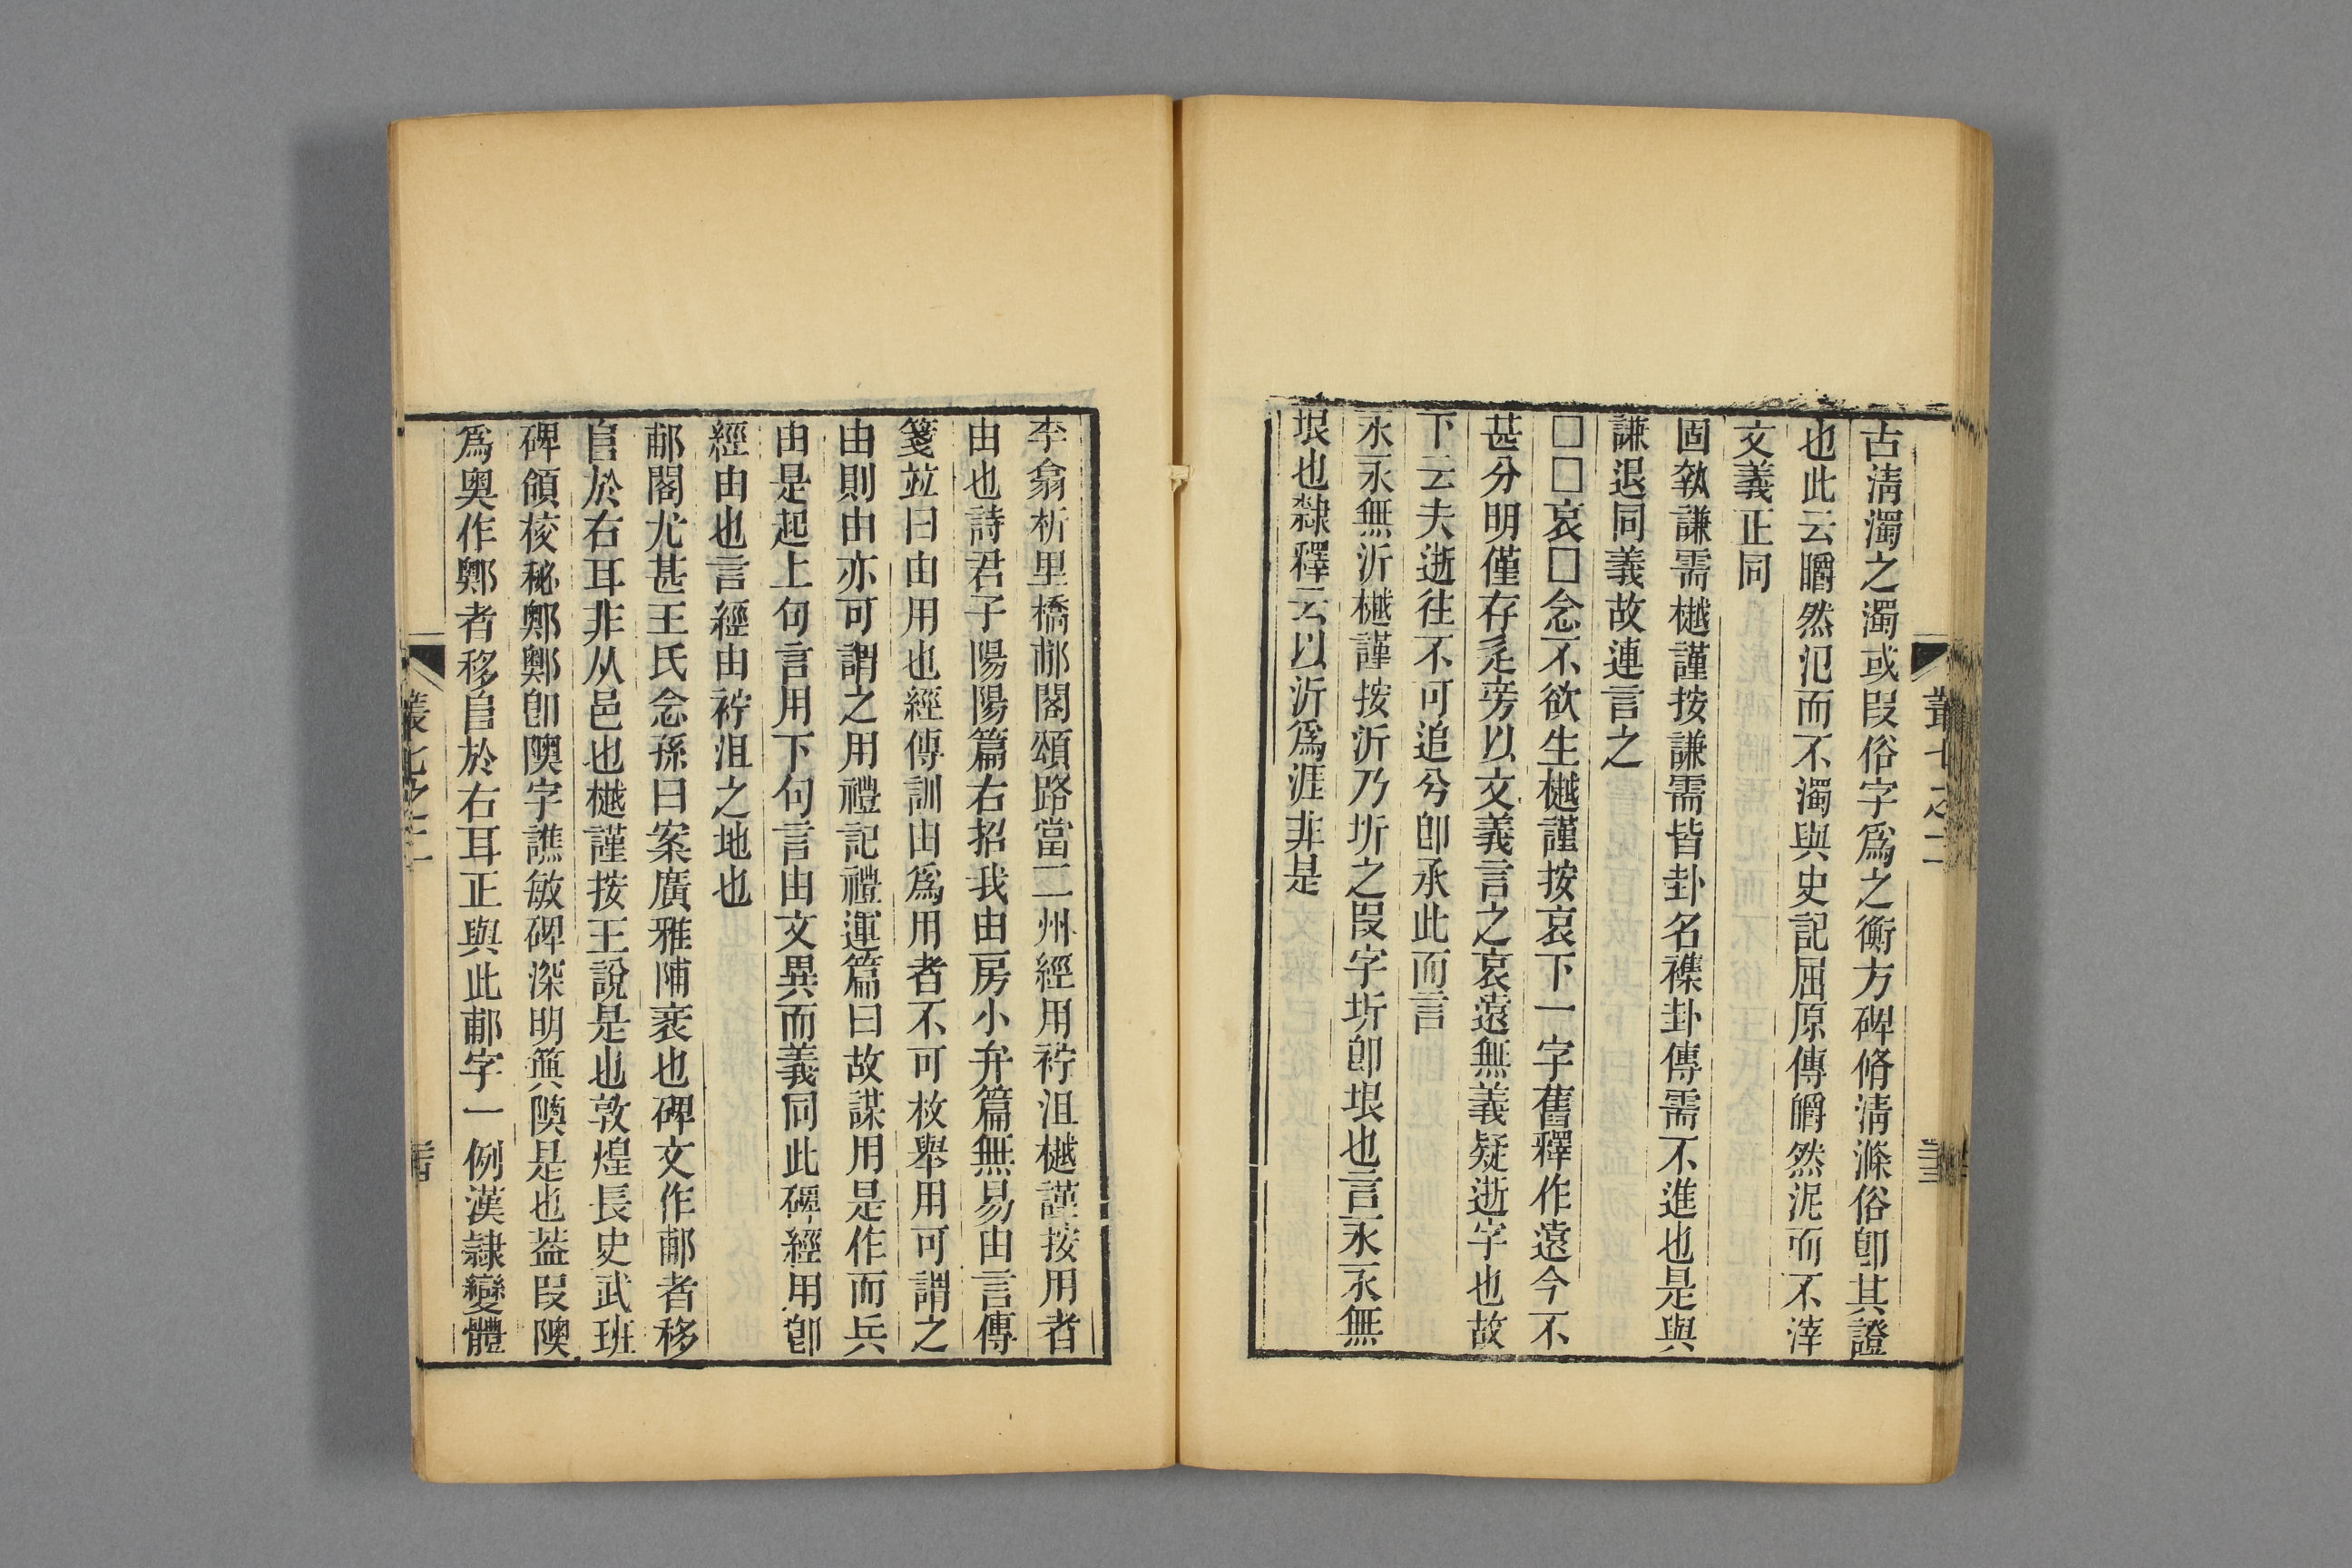 古淸濁之濁或叚俗字爲之衡方碑脩淸滌俗卽其證
也此云皭然氾而不濁與史記屈原傳皭然泥而不滓
文義正同
固執謙需樾謹按謙需皆卦名襍卦傳需不進也是與
謙退同義故連言之
□□哀□念不欲生樾謹按哀下一字舊釋作遠今不
甚分明僅存辵旁以文義言之哀遠無義疑逝字也故
下云夫逝往不可追兮卽承此而言
永永無沂樾謹按沂乃圻之叚字圻卽垠也言永永無
垠也隸釋云以沂爲涯非是
叢七之二
李翕析里橋郙閣頌路當二州經用柠沮樾謹按用者
由也詩君子陽陽篇右招我由房小弁篇無易由言傳
箋竝曰由用也經傳訓由爲用者不可枚舉用可謂之
由則由亦可謂之用禮記禮運篇曰故謀用是作而兵
由是起上句言用下句言由文異而義同此碑經用卽
經由也言經由柠沮之地也
郙閣尤甚王氏念孫曰案廣雅陠衺也碑文作郙者移
𨸏於右耳非从邑也樾謹按王說是也敦煌長史武班
碑領校秘鄭鄭卽隩字譙敏碑深明箕隩是也葢叚隩
爲奧作鄭者移𨸏於右耳正與此郙字一例漢隸變體
叢七之二